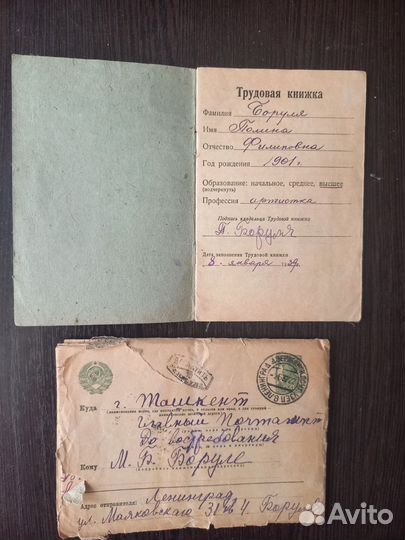 Трудовая книжка
Фамилия Боруля
Имя Полина
Отчество Филиповна
Год рождения 1901 г.
Образование: начальное, среднее, высшее
(подчеркнуть)
Профессия артистка
Подпись владельца Трудовой книжки
П. Боруля
Дата заполнения Трудовой книжки
8. января 1939г.
Куда г. Ташкент
Главный Почтамт
До востребования
Кому М. Б. Боруле
Адрес отправителя: Ленинград
ул. Маяковская 31 кв 4. Боруля
Avito